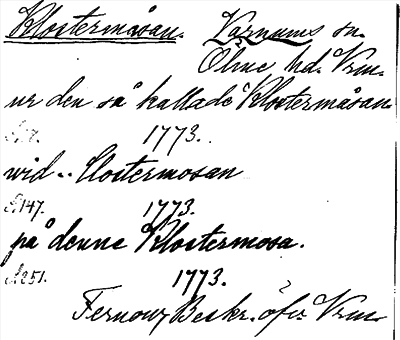 Klostermåsan. Varnums sn.
Ölme hd. Vrm.
ur den så kallade Klostermåsan
1773.
wid.. Clostermosan
S.147. 1773.
på denne Klostermosa.
S.251. 1773.
Fernow, Beskr. öfvr Vrm.